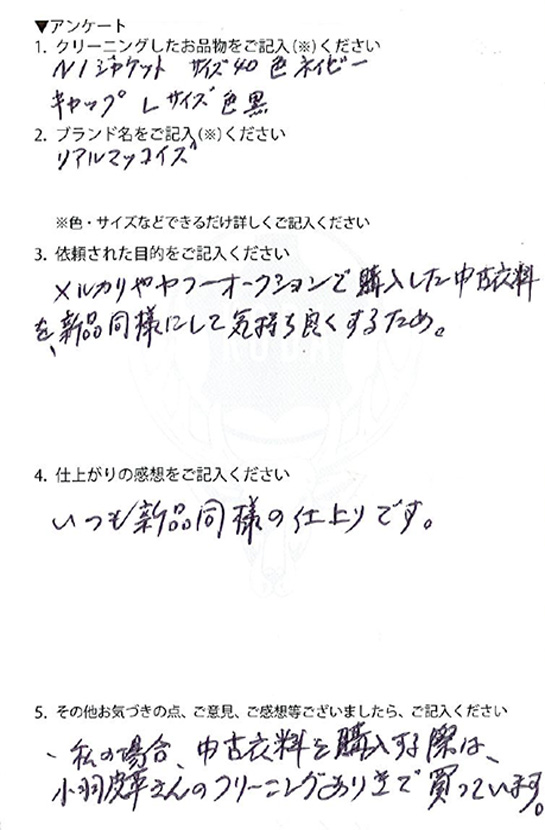 ▼アンケート
1. クリーニングしたお品物をご記入(※)ください
N1ジャケット サイズ40 色ネイビー
キャップ Lサイズ 色黒
2. ブランド名をご記入(※)ください
リアルマッコイズ
※色・サイズなどできるだけ詳しくご記入ください
3. 依頼された目的をご記入ください
メルカリやヤフーオークションで購入した中古衣料
を、新品同様にして気持ち良くするため。
4. 仕上がりの感想をご記入ください
いつも新品同様の仕上りです。
5. その他お気づきの点、ご意見、ご感想等ございましたら、ご記入ください
、私の場合、中古衣料を購入する際は、
小羽皮革さんのクリーニングあり きで買っています。